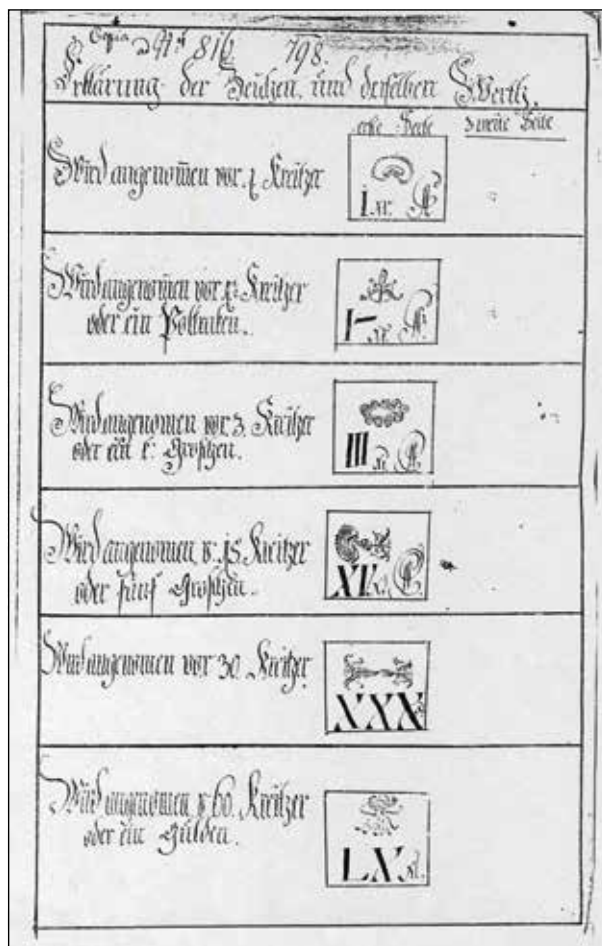 Copia ad Nr: 816 798.
Erklärung der Zeichen und deroselben Werth.
erste Seite zweite Seite
Wird angenom̄en vor 1 Kreitzer
1 xr.
Wird angenom̄en vor Kreitzer
oder ein Poltraken.
I– xr
Wird angenom̄en vor 3. Kreitzer
oder ein Groschen.
III xr
Wird angenomen v. 15. Kreitzer
oder fünf Groschen.
XV
Wird angenomen vor 30. Kreitzer
XXX
Wird angenomen v 60. Kreitzer
oder ein Gulden.
LX xr.